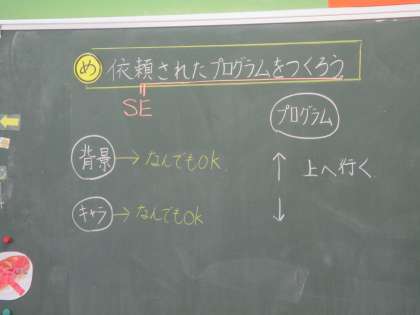 め 依頼されたプログラムをつくろう
SE
プログラム
背景 → なんでもOK
↑ 上へ行く
キャラ → なんでもOK
↓